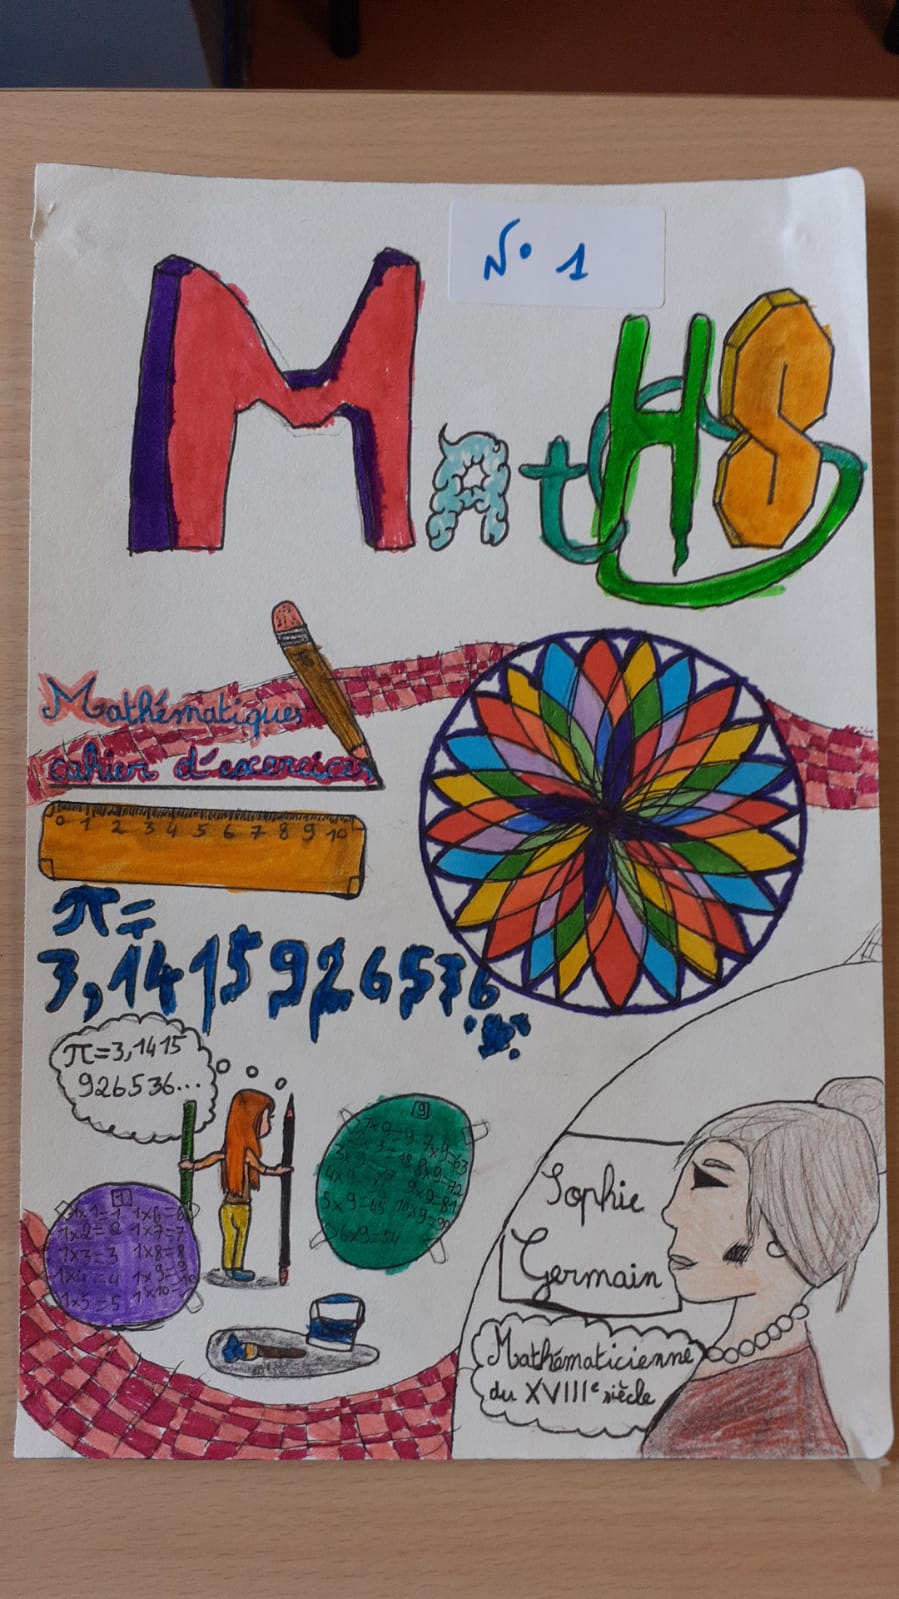 N° 1
MatHS
Mathématiques
cahier d'exercices
0 1 2 3 4 5 6 7 8 9 10
π=
3,1415926536...
π=3,1415
926536...
9
1x9=9 7x9=63
2x9=18 8x9=72
3x9=27 9x9=81
4x9=36 10x9=90
5x9=45
6x9=54
1
1x1=1 1x6=6
1x2=2 1x7=7
1x3=3 1x8=8
1x4=4 1x9=9
1x5=5 1x10=10
Sophie
Germain
Mathématicienne
du XVIIIe siècle